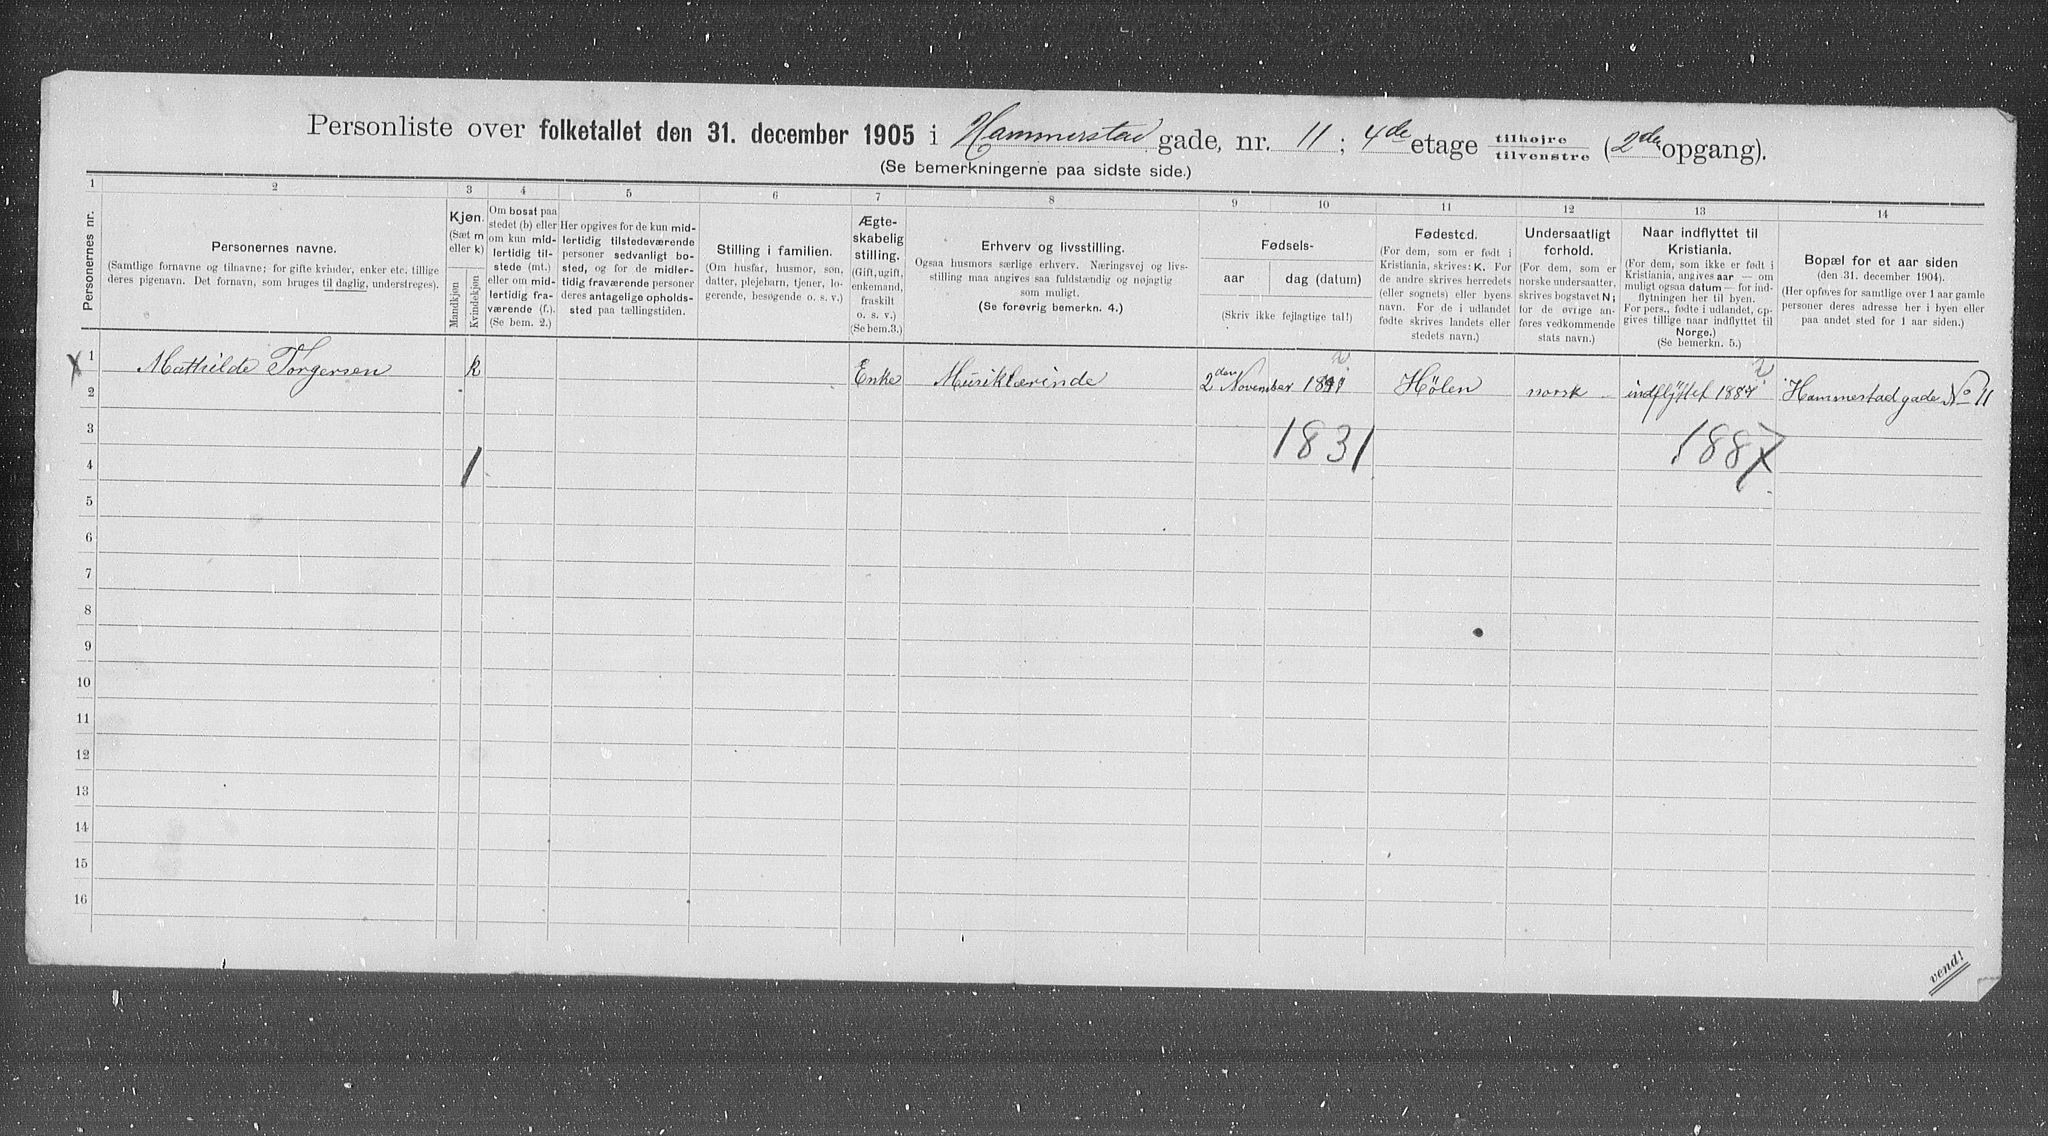 Personliste over folketallet den 31. december 1905 i Hammerstad gade, nr. 11; 4de etage tilhøjre / tilvenstre (2den opgang).
(Se bemerkningerne paa sidste side.)
1 2 3 4 5 6 7 8 9 10 11 12 13 14
Personernes nr.
Personernes navne.
(Samtlige fornavne og tilnavne; for gifte kvinder, enker etc. tillige
deres pigenavn. Det fornavn, som bruges til daglig, understreges).
Kjøn.
(Sæt m
eller k)
Mandkjøn
Kvindekjøn
Om bosat paa
stedet (b) eller
om kun mid-
lertidig til-
stede (mt.)
eller om mid-
lertidig fra-
værende (f.).
(Se bem. 2.)
Her opgives for de kun mid-
lertidig tilstedeværende
personer sedvanligt bo-
sted, og for de midler-
tidig fraværende personer
deres antagelige opholds-
sted paa tællingstiden.
Stilling i familien.
(Om husfar, husmor, søn,
datter, plejebarn, tjener, lo-
gerende, besøgende o. s. v.)
Ægte-
skabelig
stilling.
(Gift, ugift,
enkemand,
fraskilt
o. s. v.)
(Se bem.3.)
Erhverv og livsstilling.
Ogsaa husmors særlige erhverv. Næringsvej og livs-
stilling maa angives saa fuldstændig og nøjagtig
som muligt.
(Se forøvrig bemerkn. 4.)
Fødsels-
aar
dag (datum)
(Skriv ikke fejlagtige tal!)
Fødested.
(For dem, som er født i
Kristiania, skrives: K. For
de andre skrives herredets
(eller sognets) eller byens
navn. For de i udlandet
fødte skrives landets eller
stedets navn.)
Undersaatligt
forhold.
(For dem, som er
norske undersaatter,
skrives bogstavet N;
for de øvrige an-
føres vedkommende
stats navn.)
Naar indflyttet til
Kristiania.
(For dem, som ikke er født i
Kristiania, angives aar — om
muligt ogsaa datum — for ind-
flytningen her til byen.
For pers., fødte i udlandet, op-
gives tillige naar indflyttet til
Norge.)
(Se bemerkn. 5.)
Bopæl for et aar siden
(den 31. december 1904).
(Her opføres for samtlige over 1 aar gamle
personer deres adresse her i byen eller
paa andet sted for 1 aar siden.)
X 1 Mathilde Torgersen k Enke Musiklærinde 2den November Hølen norsk indflyttet 1887 Hammestad gade No 11
2
3 1831 1887
4 1
5
6
7
8
9
10
11
12
13
14
15
16
vend!